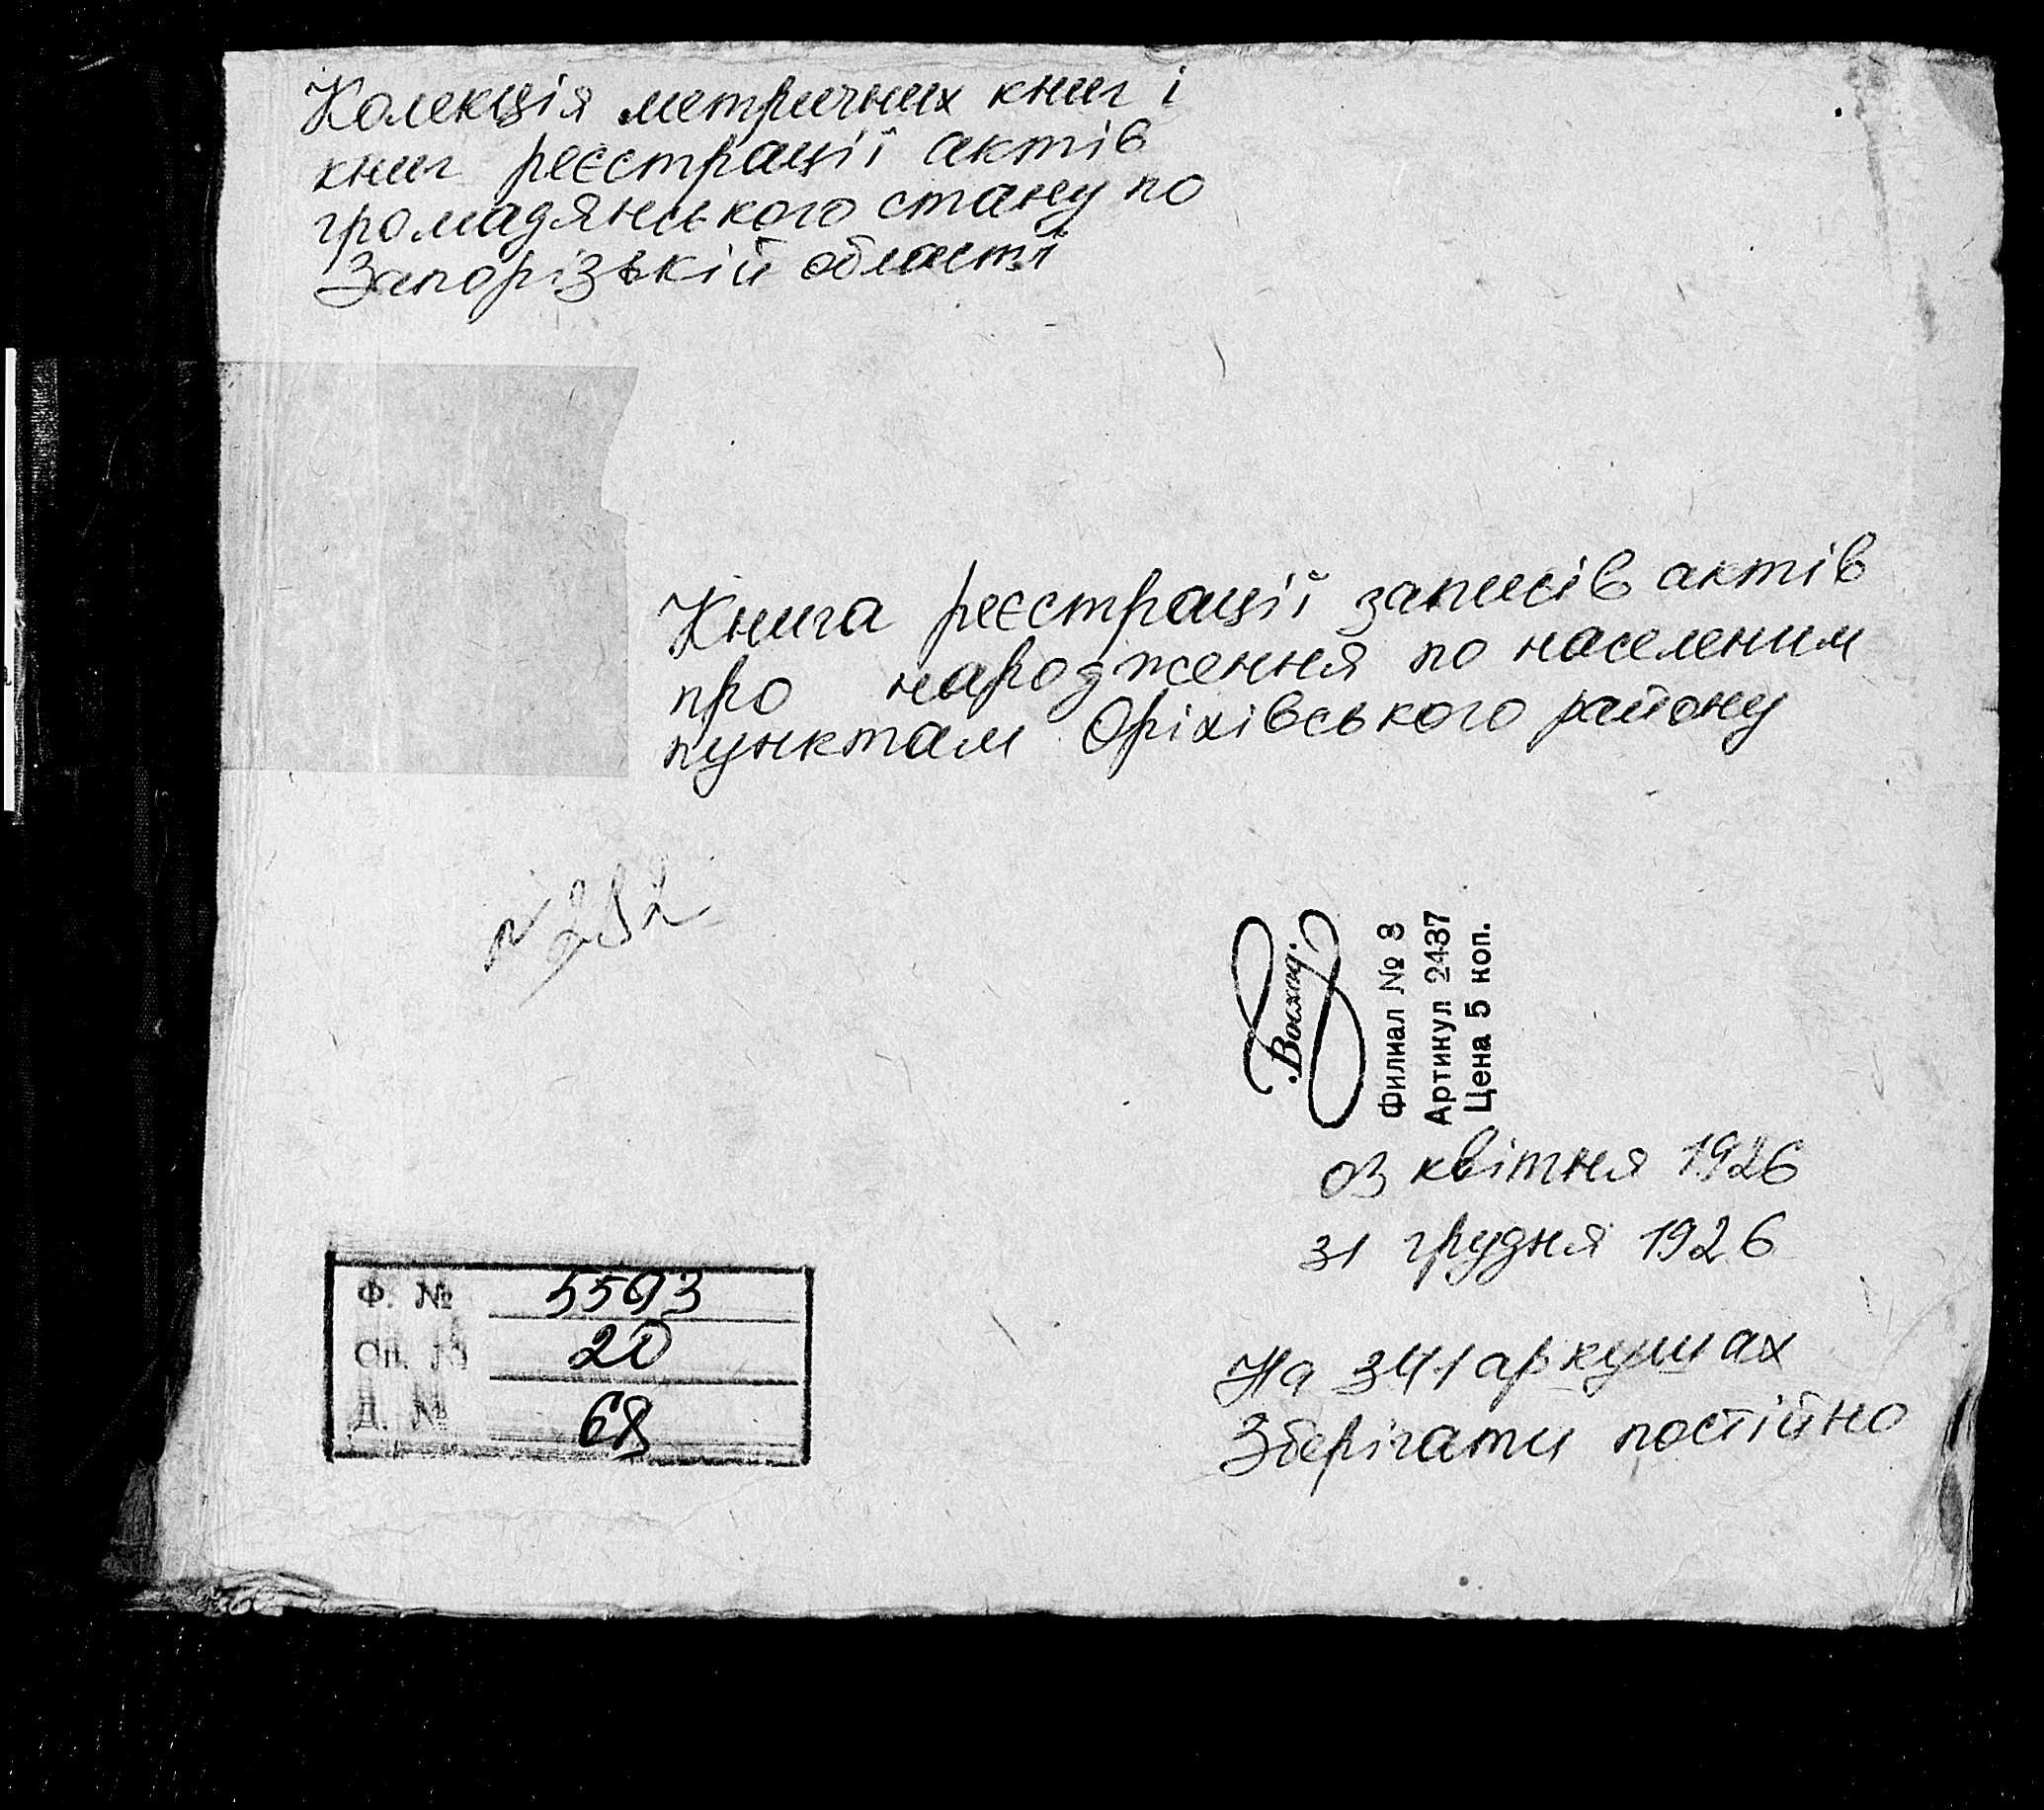 Колекція метричних книг і
книг реєстрації актів
громадянського стану по
Запорізькій області
Книга реєстрації записів актів
про народження по населеним
пунктам Оріхівського району
№ 282
Восход
Филиал № 3
Артикул 2437
Цена 5 коп.
03 квітня 1926
31 грудня 1926
На 341 аркушах
Зберігати постійно
Ф. № 5593
Оп. № 20
Д. №